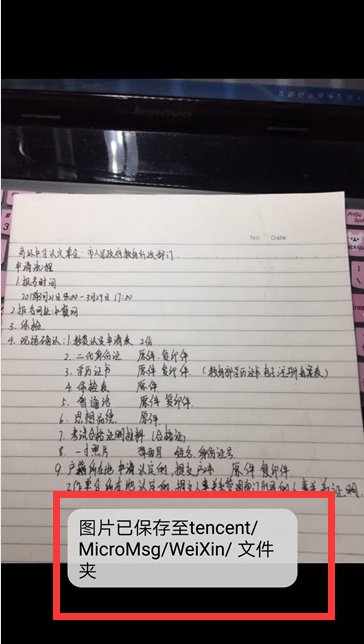 lenovo
No.   Date
高级中学认定单位：市人民政府教育行政部门
申请流程
1.报名时间
2018年3月21日 8:00-3月29日 17:00
2.报名网址:中资网
3.体检
4.现场确认：1.教资认定申请表 2份
2.二代身份证 原件.复印件
3.学历证书 原件 复印件 （教育部学历证书电子注册备案表）
4.体检表 原件
5.普通话 原件 复印件
6.思想品德 原件
7.考试合格证明材料（合格证）
8.一寸照片 背面写 姓名.身份证号
9.户籍所在地申请认定的，提交户口本 原件 复印件
工作单位所在地认定的 提交人事关系
图片已保存至tencent/
MicroMsg/WeiXin/ 文件
夹